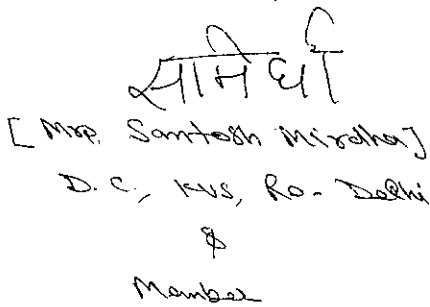 [Mrs. Santosh Mirdha]
D.C., KVS, Ro-Delhi
&
Member